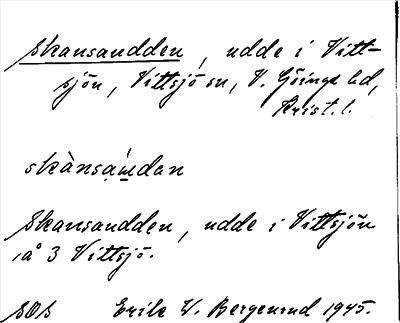 Skansaudden, udde i Vitt-
sjön, Vittsjö sn, V. Göinge hd,
Krist. l.
skànsau̯dan
Skansaudden, udde i Vittsjön
å 3 Vittsjö.
SOS Erik W. Bergenrud 1945.